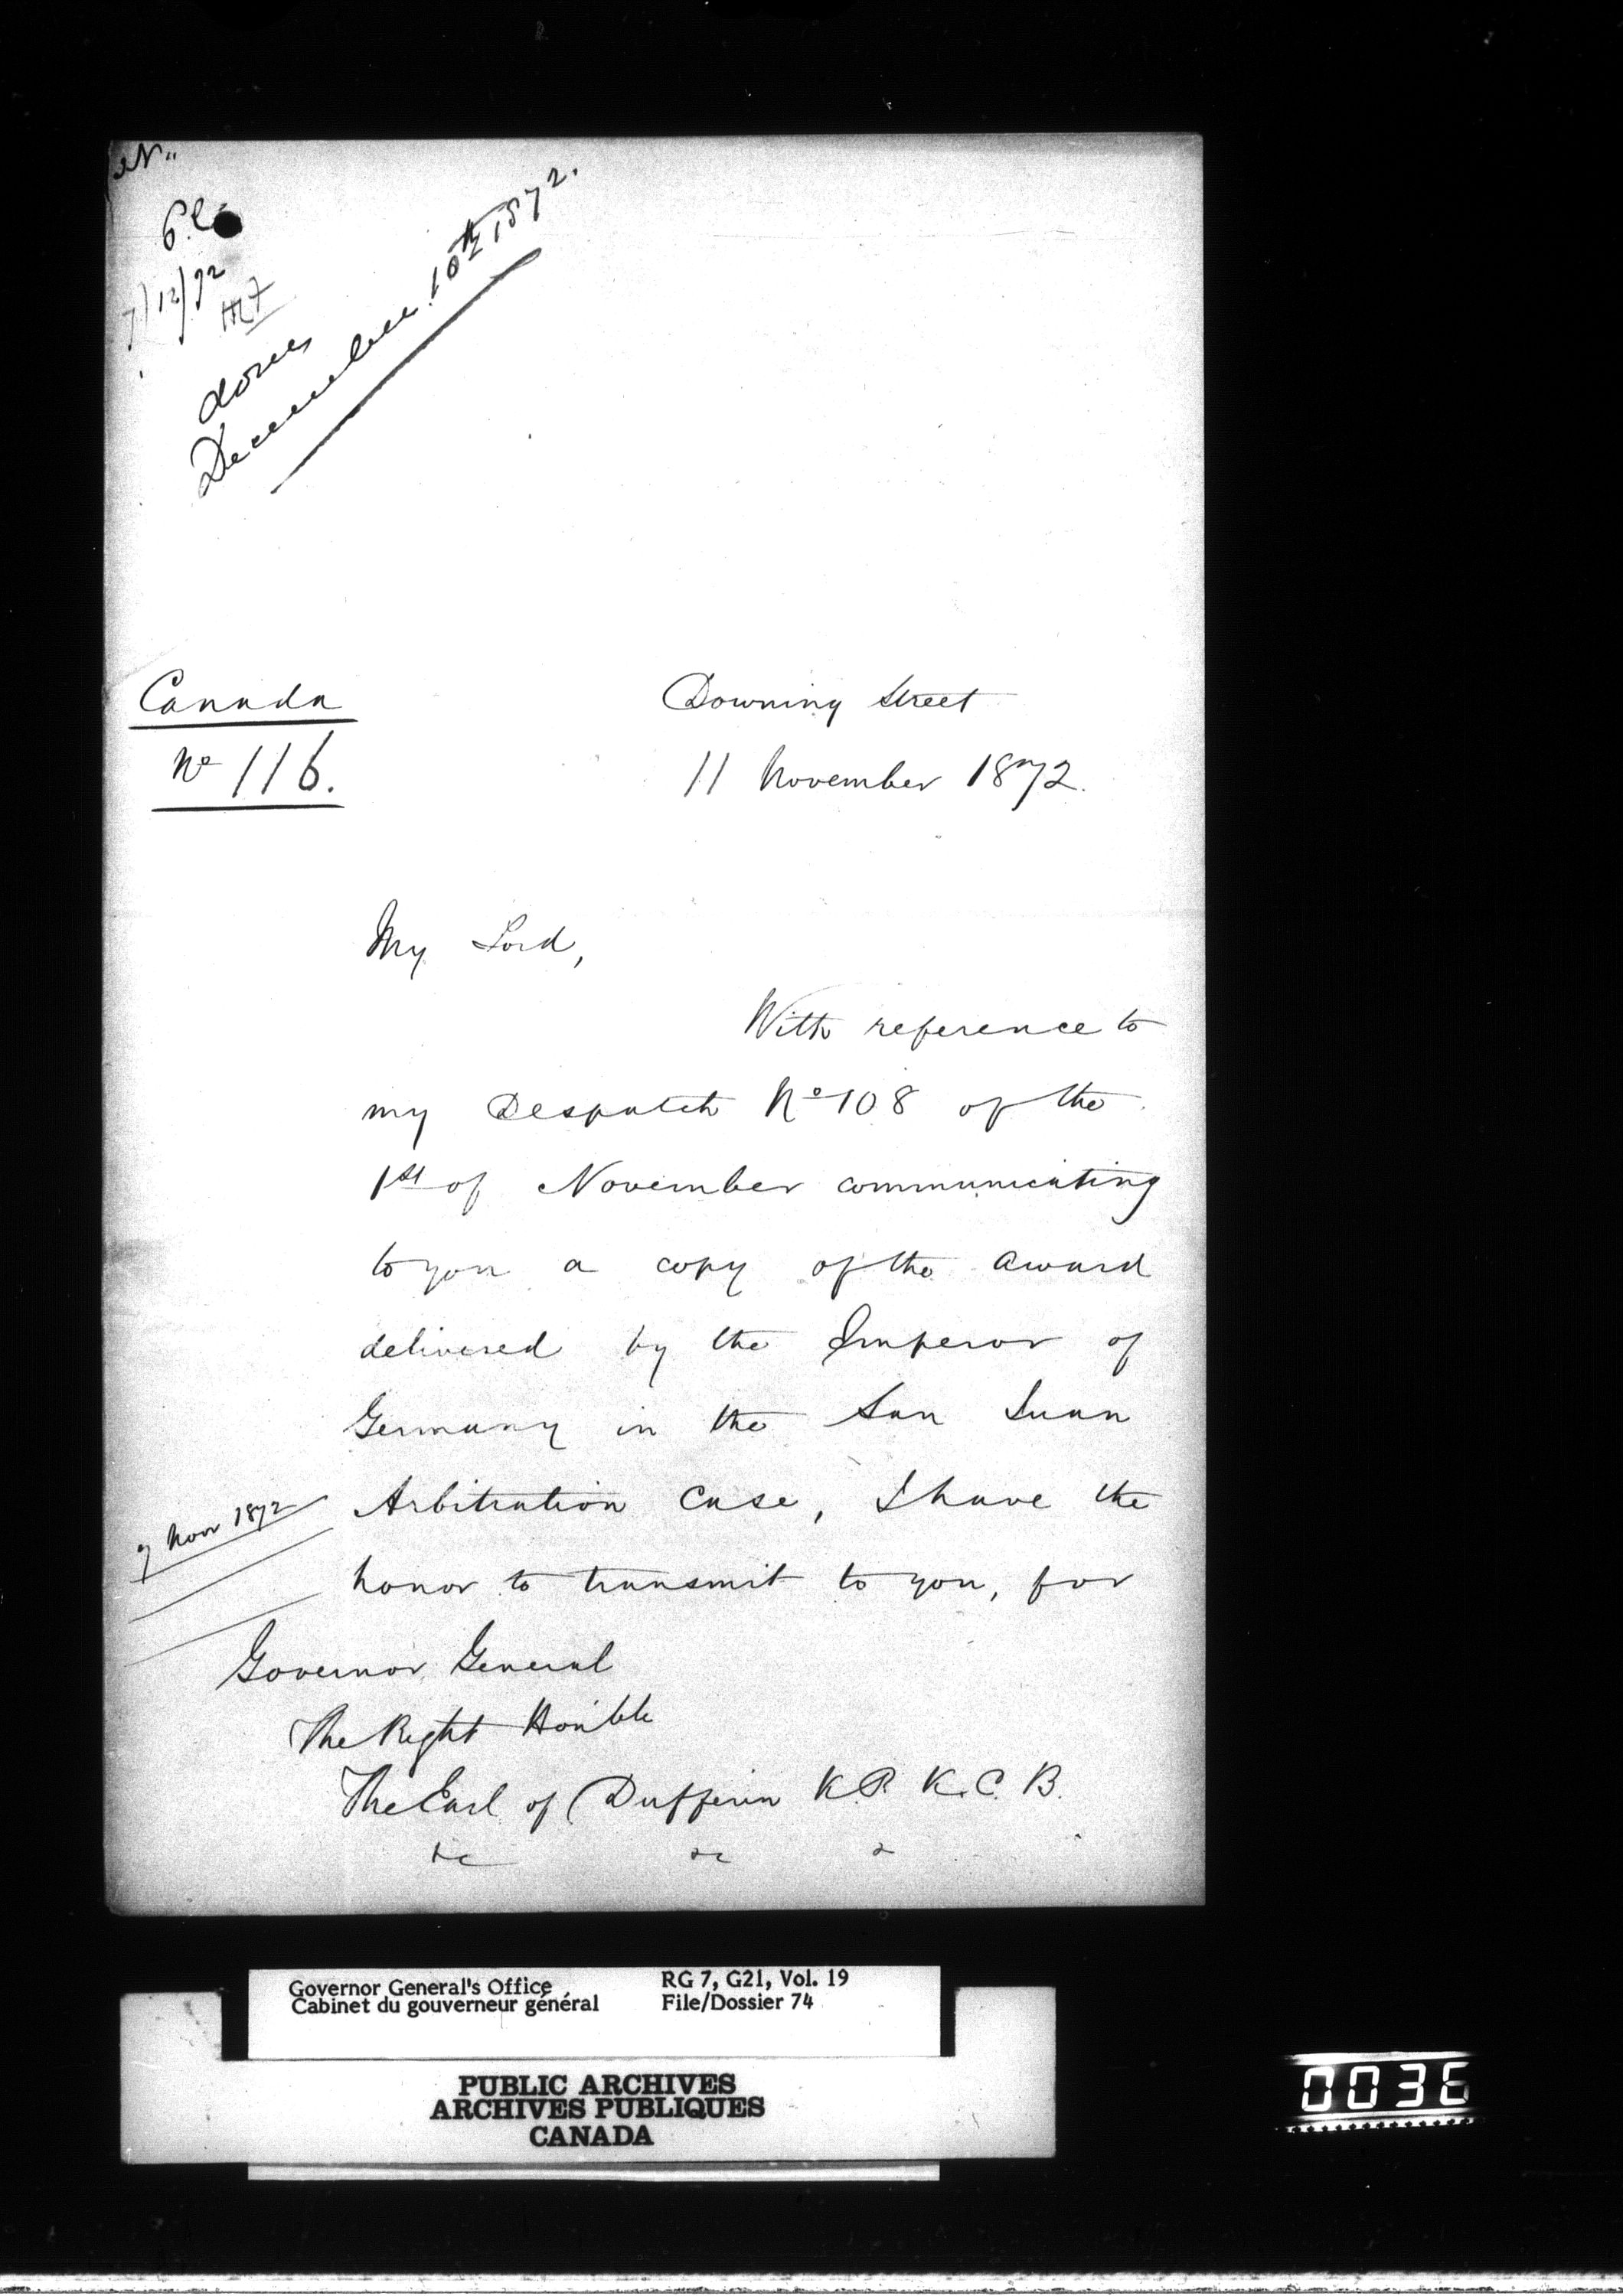 7/12/72
done
December 10th 1872.
Canada
No 116.
Downing Street
11 November 1872.
My Lord,
With reference to
my Despatch No 108 of the
1st of November communicating
to you a copy of the award
delivered by the Emperor of
Germany in the San Juan
Arbitration Case, I have the
7 Novr 1872
honor to transmit to you, for
Governor General
The Right Honble
The Earl of Dufferin K.P. K.C.B.
&c &c &
Governor General's Office
Cabinet du gouverneur général
RG 7, G21, Vol. 19
File/Dossier 74
PUBLIC ARCHIVES
ARCHIVES PUBLIQUES
CANADA
0036